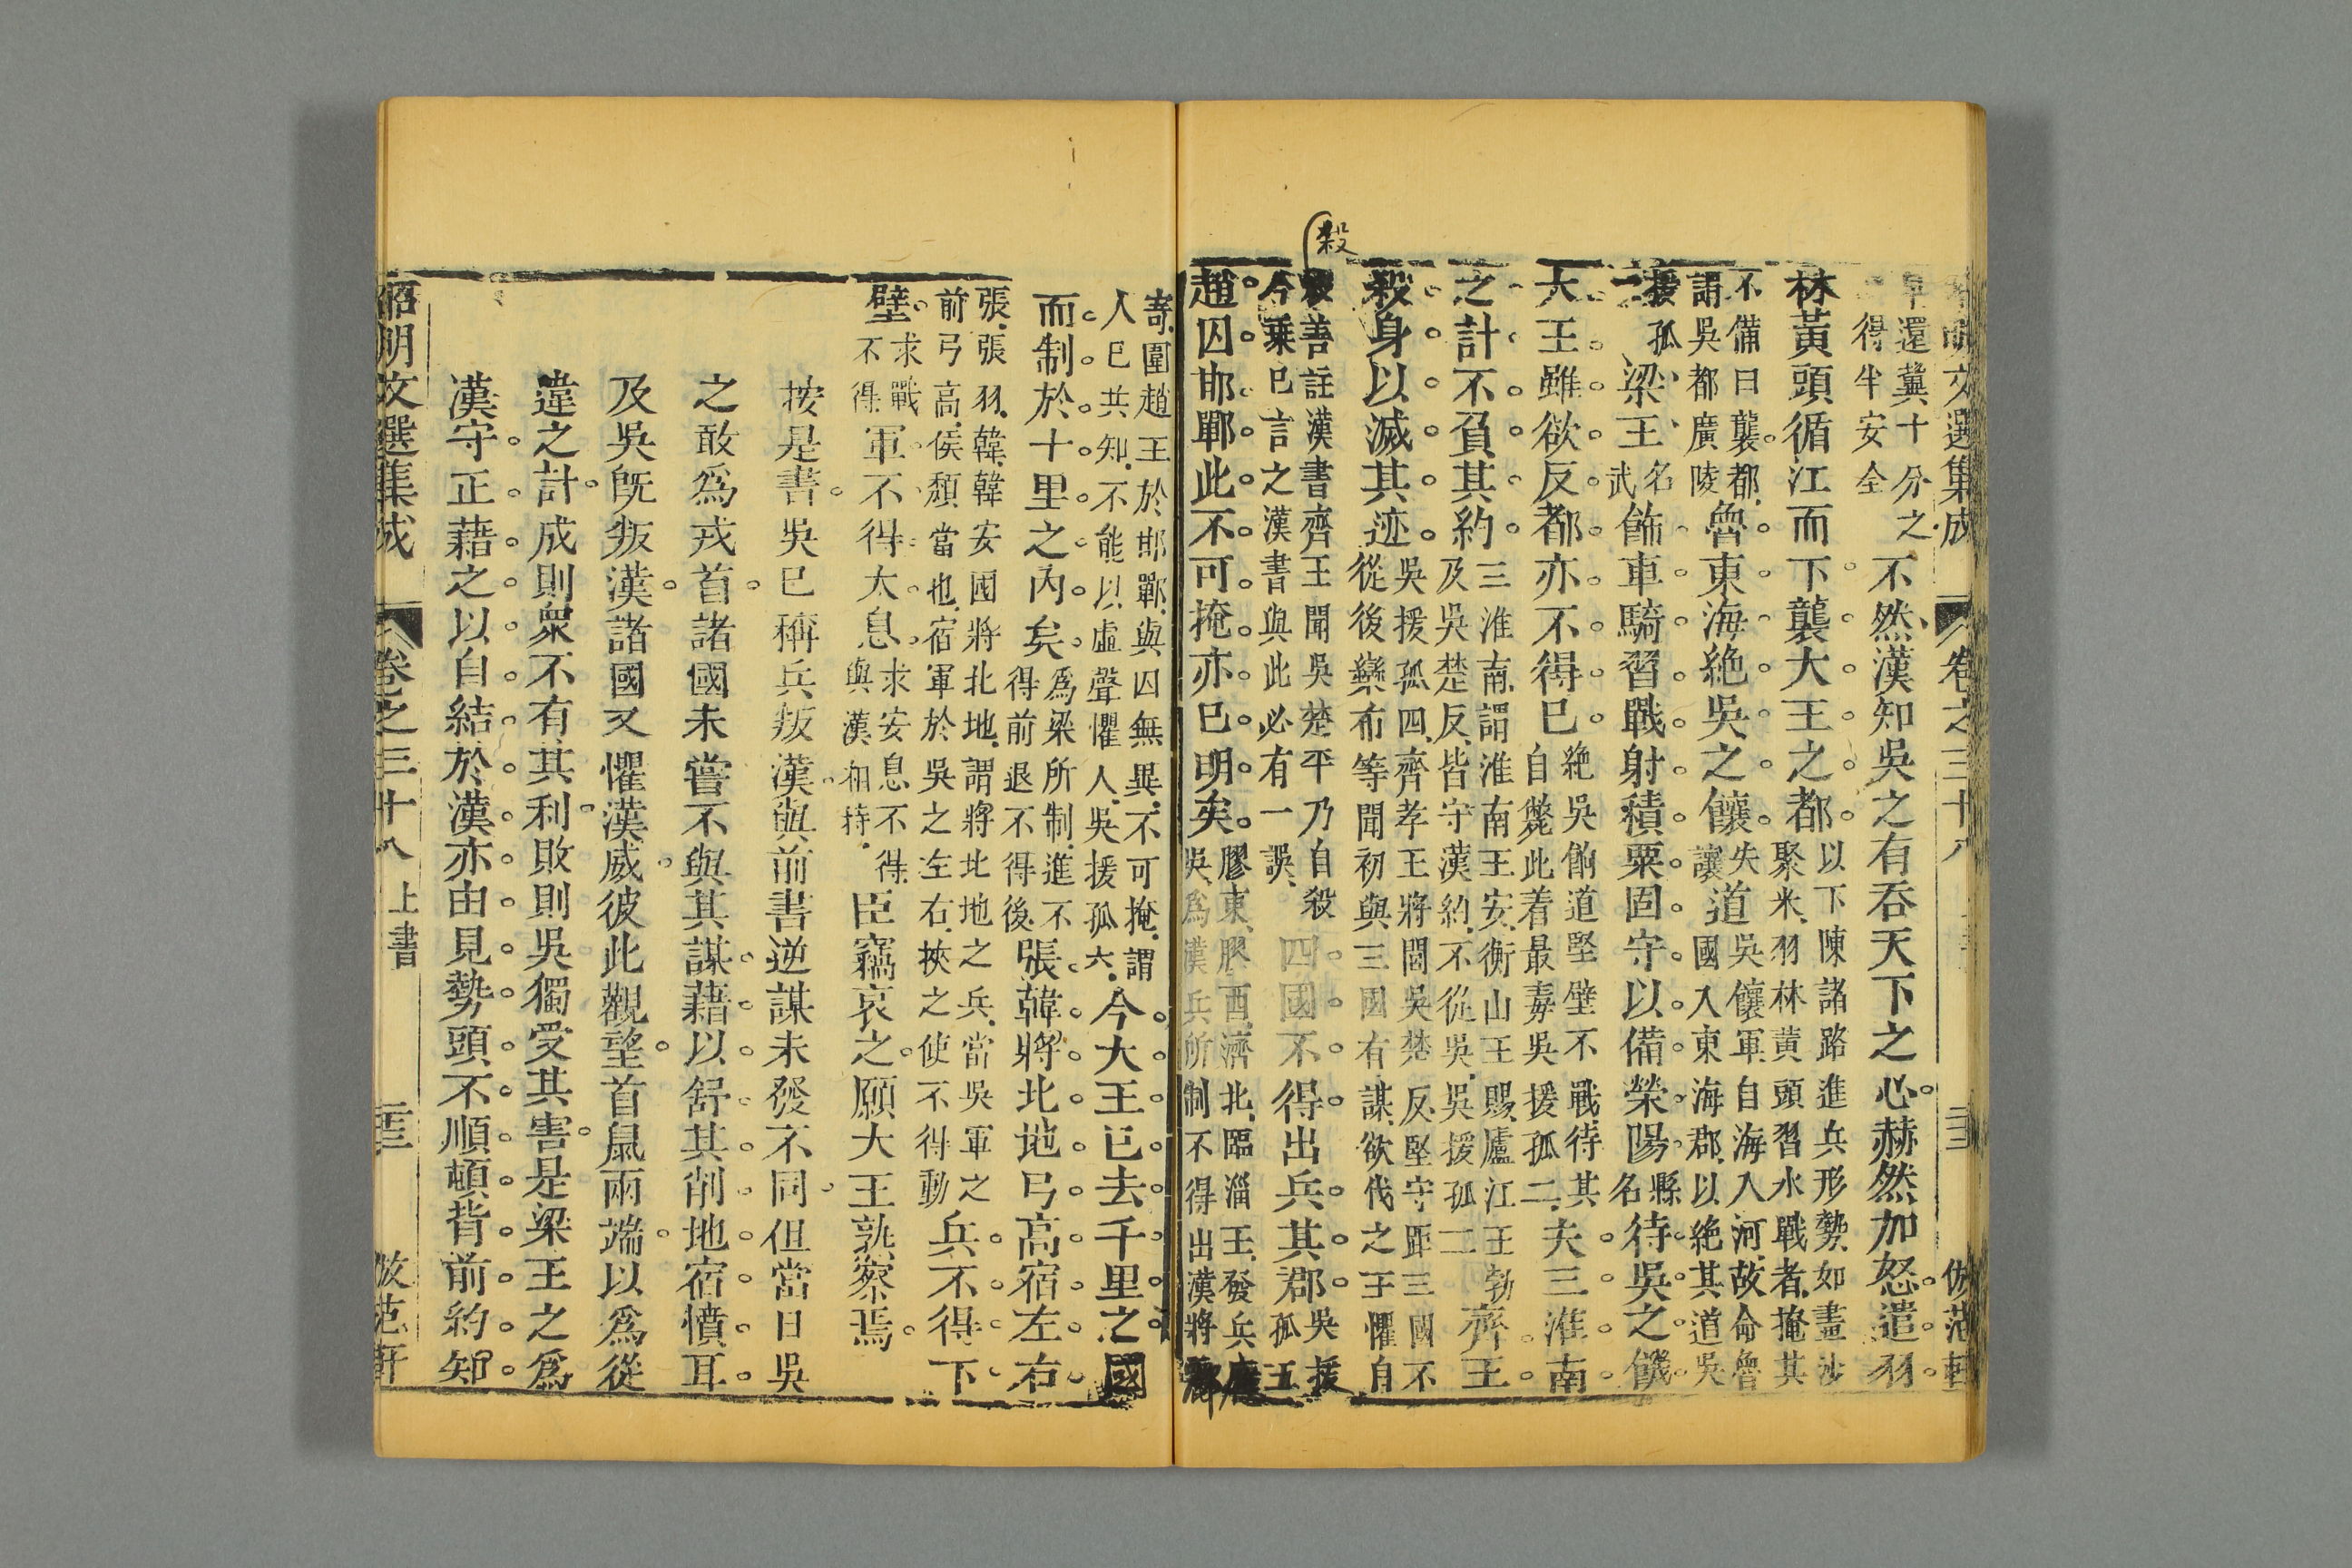 殺
昭明文選集成 卷之三十八 二十二 倣范軒
早還冀十分之
得半安全
不然漢知吳之有吞天下之心赫然加怒遣羽
林黃頭循江而下襲大王之都
以下陳諸路進兵形勢如畫沙
聚米羽林黃頭習水戰者掩其
不備曰襲都
謂吳都廣陵
魯東海絶吳之饟
失
讓
道
吳饟軍自海入河故命魯
國入東海郡以絶其道吳
援孤
一
梁王
名
武
飾車騎習戰射積粟固守以備滎陽
縣
名
待吳之饑
大王雖欲反都亦不得已
絶吳餉道堅壁不戰待其
自斃此着最毒吳援孤二
夫三淮南
之計不負其約
三淮南謂淮南王安衡山王賜廬江王勃
及吳楚反皆守漢約不從吳吳援孤二
齊王
殺身以滅其迹
吳援孤四齊孝王將閭吳楚反堅守距三國不
從後欒布等聞初與三國有謀欲伐之王懼自
殺善註漢書齊王聞吳楚平乃自殺
今乗已言之漢書與此必有一誤
四國不得出兵其郡
吳援
孤五
趙囚邯鄲此不可掩亦已明矣
膠東膠西濟北臨淄王發兵應
吳爲漢兵所制不得出漢將酈
寄圍趙王於邯鄲與囚無異不可掩謂
人已共知不能以虛聲懼人吳援孤六
今大王已去千里之國
而制於十里之內矣
爲梁所制進不
得前退不得後
張韓將北地弓高宿左右
張張羽韓韓安國將北地謂將北地之兵當吳軍之
前弓高侯頽當也宿軍於吳之左右挾之使不得動
兵不得下
壁
求戰
不得
軍不得太息
求安息不得
與漢相持
臣竊哀之願大王孰察焉
按是書吳已稱兵叛漢與前書逆謀未發不同但當日吳
之敢爲戎首諸國未嘗不與其謀藉以舒其削地宿憤耳
及吳旣叛漢諸國又懼漢威彼此觀望首鼠兩端以爲從
違之計成則衆不有其利敗則吳獨受其害是梁王之爲
漢守正藉之以自結於漢亦由見勢頭不順頓背前約知
昭明文選集成 卷之三十八 上書 二十三 倣范軒